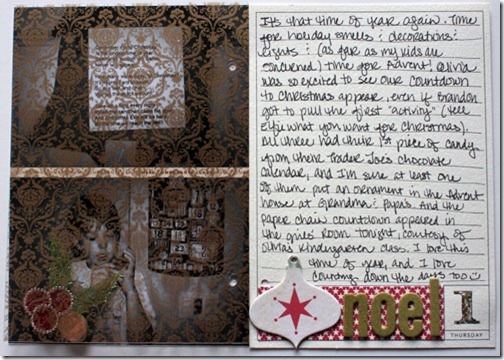 It's that time of year again. Time
for holiday smells : decorations :
lights : (as far as my kids are
concerned) time for Advent! Olivia
was so excited to see our countdown
to Christmas appear, even if Brandon
got to pull the first "activity" (tell
what you want for Christmas).
All three had their 1st piece of candy
from their Trader Joe's chocolate
calendar, and I'm sure at least one
of them put an ornament in the Advent
house at Grandma : Papa's. And the
paper chain countdown appeared in
the girls' room tonight, courtesy of
Olivia's kindergarten class. I love this
time of year, and I love
counting down the days too
noel
1
THURSDAY